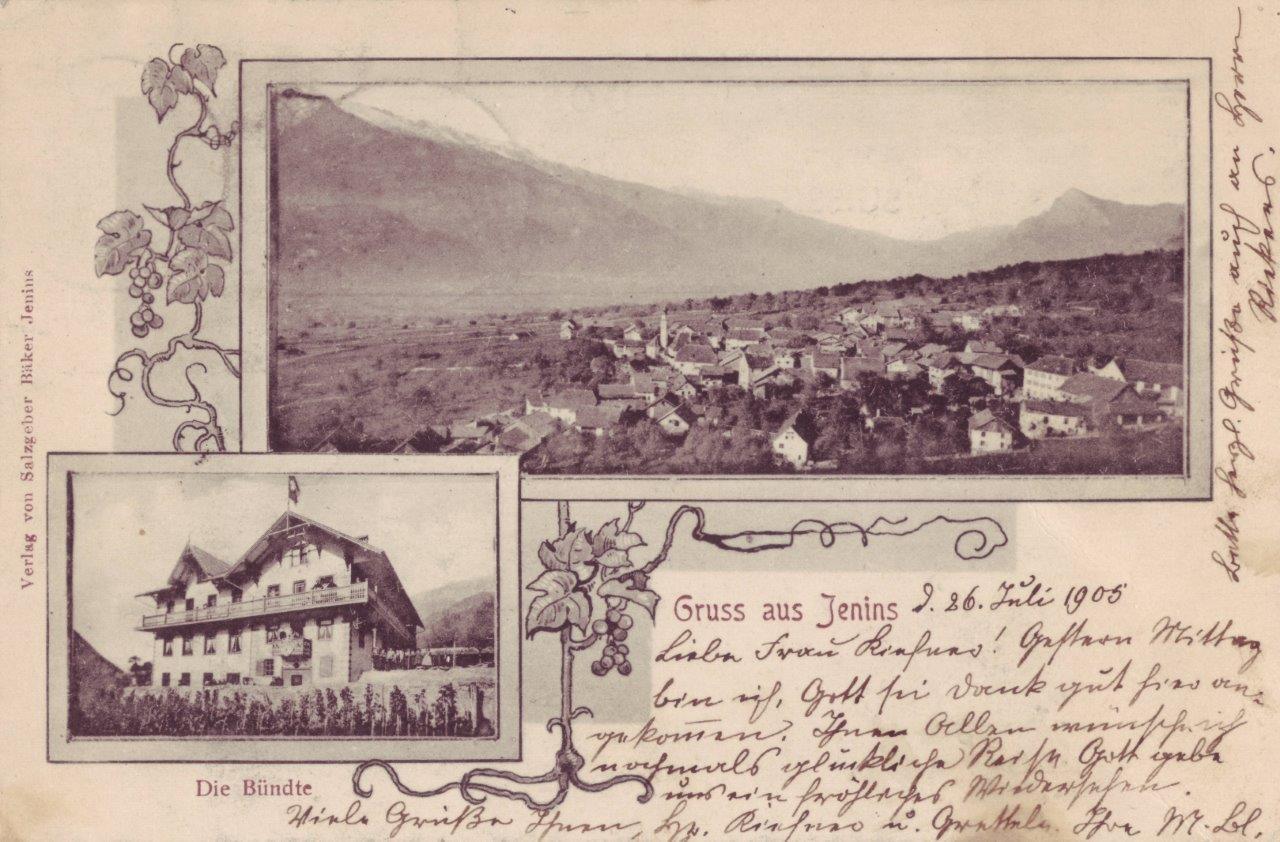 Verlag von Salzgeber Bäker Jenins
Gruss aus Jenins d. 26. Juli 1905
Liebe Frau Kiefner! Gestern Mittag
bin ich, Gott sei Dank gut hier an-
gekommen. Ihnen Allen wünsche ich
nochmals glückliche Reise Gott gebe
uns ein fröhliches Wiedersehen.
Die Bündte
Viele Grüße Ihnen, Hr. Kiefner u. Gretteln. Ihre M. Bl.
Bitte herzl. Grüße auch an Herrn